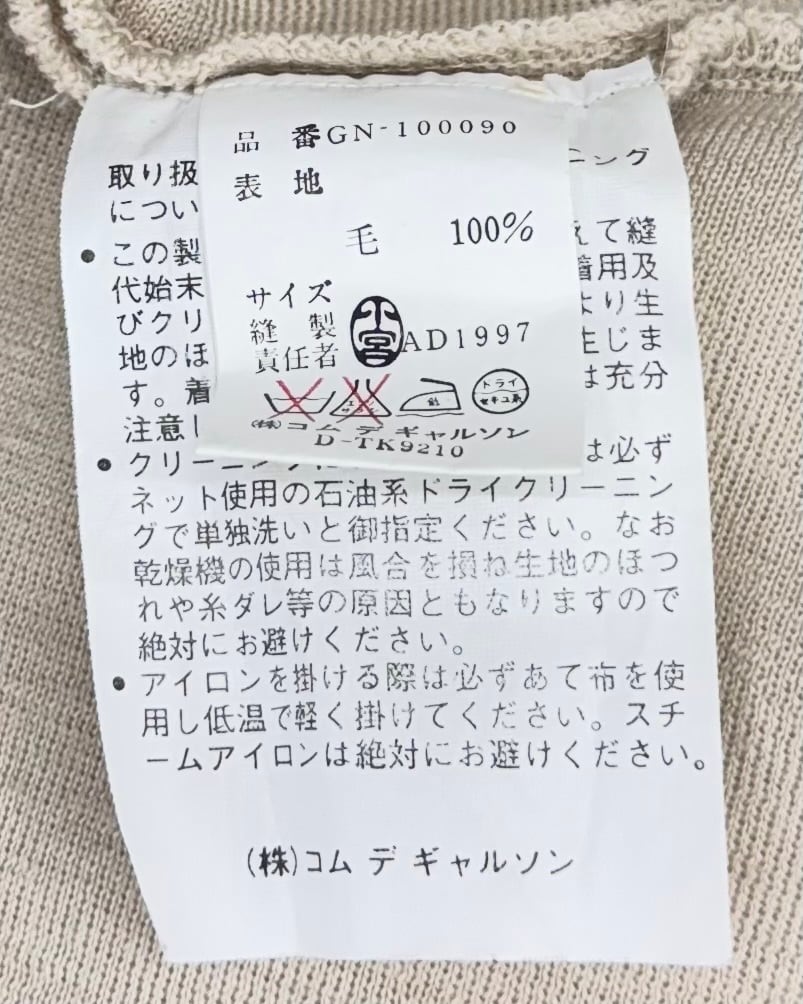 品 番GN-100090
表 地
毛 100%
サイズ
縫 製
責任者 小宮 AD1997
ドライ
セキユ系
(株)コム デ ギャルソン
D-TK9210
取り扱
ニング
につい
• この製
えて縫
代始末
着用及
びクリ
より生
地のほ
生じま
す。着
は充分
注意し
• クリーニング
は必ず
ネット使用の石油系ドライクリーニン
グで単独洗いと御指定ください。なお
乾燥機の使用は風合を損ね生地のほつ
れや糸ダレ等の原因ともなりますので
絶対にお避けください。
• アイロンを掛ける際は必ずあて布を使
用し低温で軽く掛けてください。スチ
ームアイロンは絶対にお避けください。
(株)コム デ ギャルソン